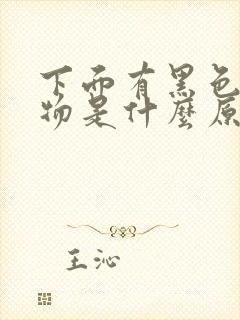 下面有黑色
物是什麼原
王沁